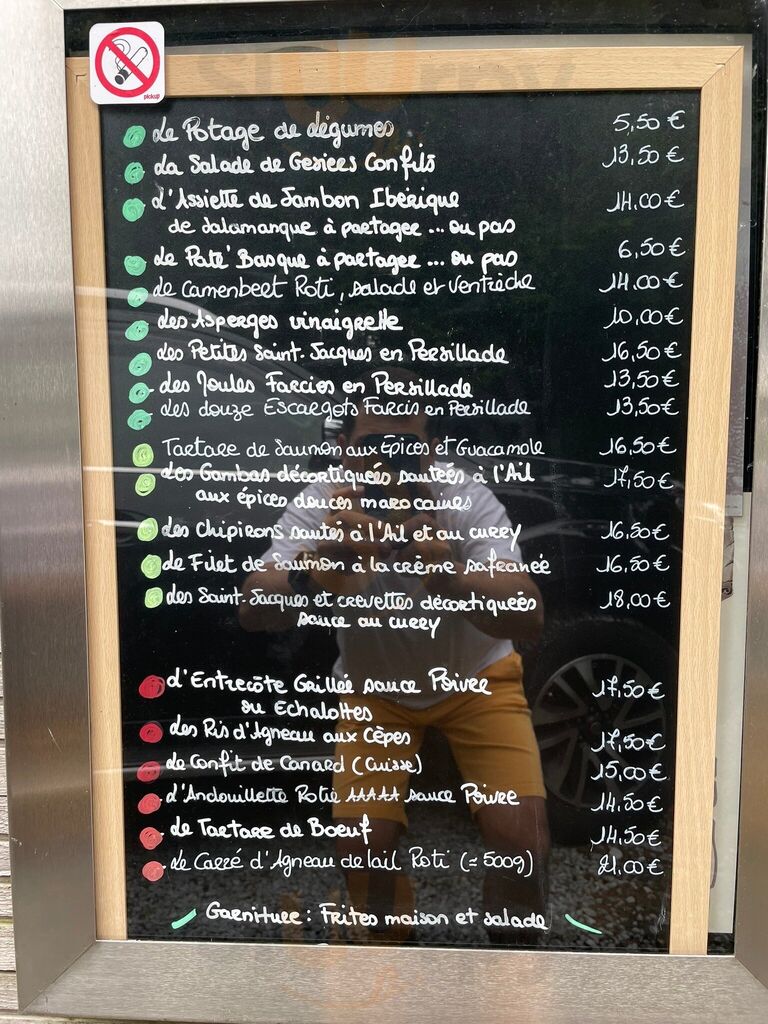 pickup
Le Potage de légumes 5,50 €
La Salade de Gésiers Confits 13,50 €
L'Assiette de Jambon Ibérique 14.00 €
de Salamanque à partager ... ou pas
Le Paté Basque à partager ... ou pas 6,50 €
Le Camenbert Roti, salade et ventrèche 14.00 €
Les Asperges vinaigrette 10,00 €
Les Petites Saint-Jacques en Persillade 16,50 €
Les Moules Farcies en Persillade 13,50 €
Les douze Escargots Farcis en Persillade 13,50 €
Tartare de Saumon aux Épices et Guacamole 16,50 €
Les Gambas décortiquées sautées à l'Ail 17,50 €
aux épices douces marocaines
Les Chipirons sautés à l'Ail et au curry 16,50 €
Le Filet de Saumon à la crème safranée 16,50 €
Les Saint-Jacques et crevettes décortiquées 18,00 €
sauce au curry
L'Entrecôte Grillée sauce Poivre 17,50 €
ou Echalottes
Les Ris d'Agneau aux Cèpes 17,50 €
Le Confit de Canard (Cuisse) 15,00 €
L'Andouillette Rotie AAAAA sauce Poivre 14.50 €
Le Tartare de Boeuf 14,50 €
Le Carré d'Agneau de lait Roti (≃ 500g) 21,00 €
Garniture : Frites maison et salade